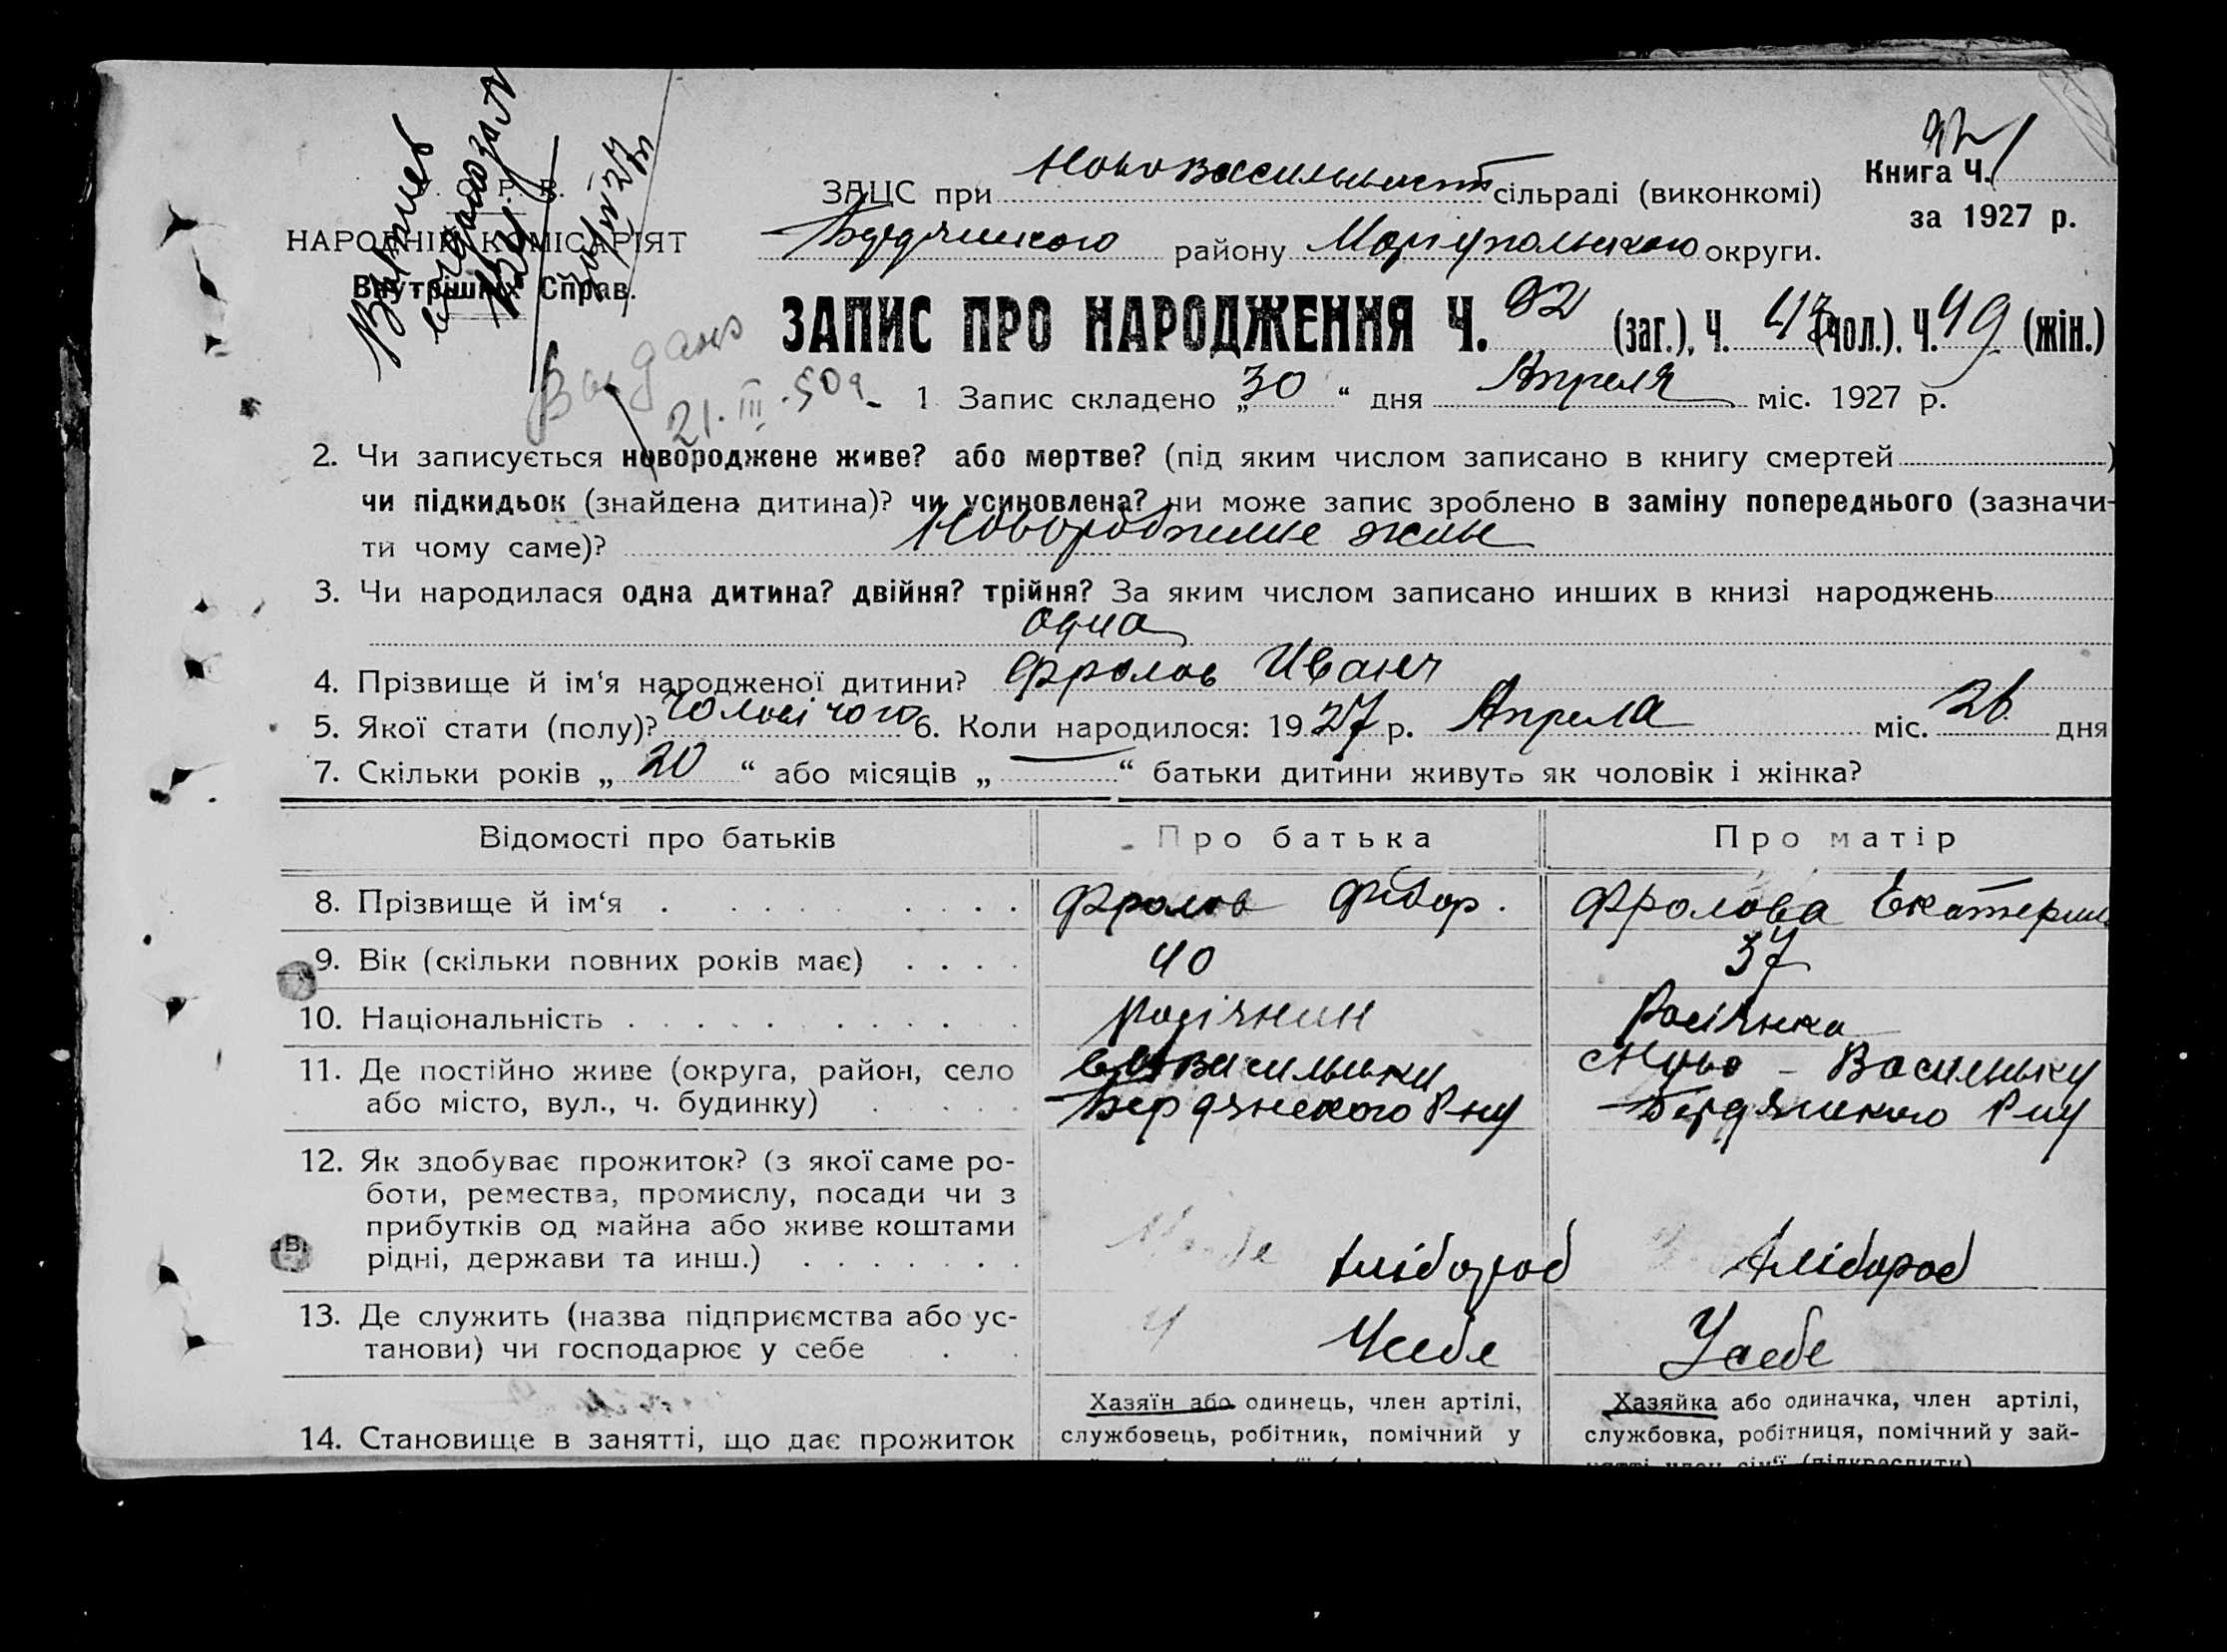 Книга Ч.
за 1927 р.
ЗАЦС при Нововасильевской сільраді (виконкомі)
Бердянского району Маріупольского округи.
НАРОДНІЙ КОМІСАРІЯТ
Внутрішніх Справ.
30/IV 27
ЗАПИС ПРО НАРОДЖЕННЯ Ч. 92 (заг.), Ч. 43 (чол.). Ч. 49 (жін.)
Выдано
21.III.50 г.
1 Запис складено „30“ дня Апреля міс. 1927 р.
2. Чи записується новороджене живе? або мертве? (під яким числом записано в книгу смертей )
чи підкидьок (знайдена дитина)? чи усиновлена? чи може запис зроблено в заміну попереднього (зазначи-
ти чому саме)? Новорожденне живе
3. Чи народилася одна дитина? двійня? трійня? За яким числом записано инших в книзі народжень
одна
4. Прізвище й ім‘я народженої дитини? Фролов Иван
5. Якої стати (полу)? Чоловічого 6. Коли народилося: 1927 р. Апреля міс. 26 дня
7. Скільки років „ 20 “ або місяців „ — “ батьки дитини живуть як чоловік і жінка?
Відомості про батьків Про батька Про матір
8. Прізвище й ім‘я Фролов Федор. Фролова Екатерин
9. Вік (скільки повних років має) 40 37
10. Національність росіянин Росіянка
11. Де постійно живе (округа, район, село Ново-Васильевку
або місто, вул., ч. будинку) Бердянского Р-ну Бердянского Р-ну
12. Як здобуває прожиток? (з якої саме ро-
боти, ремества, промислу, посади чи з
прибутків од майна або живе коштами
рідні, держави та инш.) Хлібороб Хлібороб
13. Де служить (назва підприємства або ус-
танови) чи господарює у себе У себе У себе
Хазяїн або одинець, член артілі, Хазяйка або одиначка, член артілі,
14. Становище в занятті, що дає прожиток службовець, робітник, помічний у службовка, робітниця, помічний у зай-
нятті член сім‘ї (підкреслити)